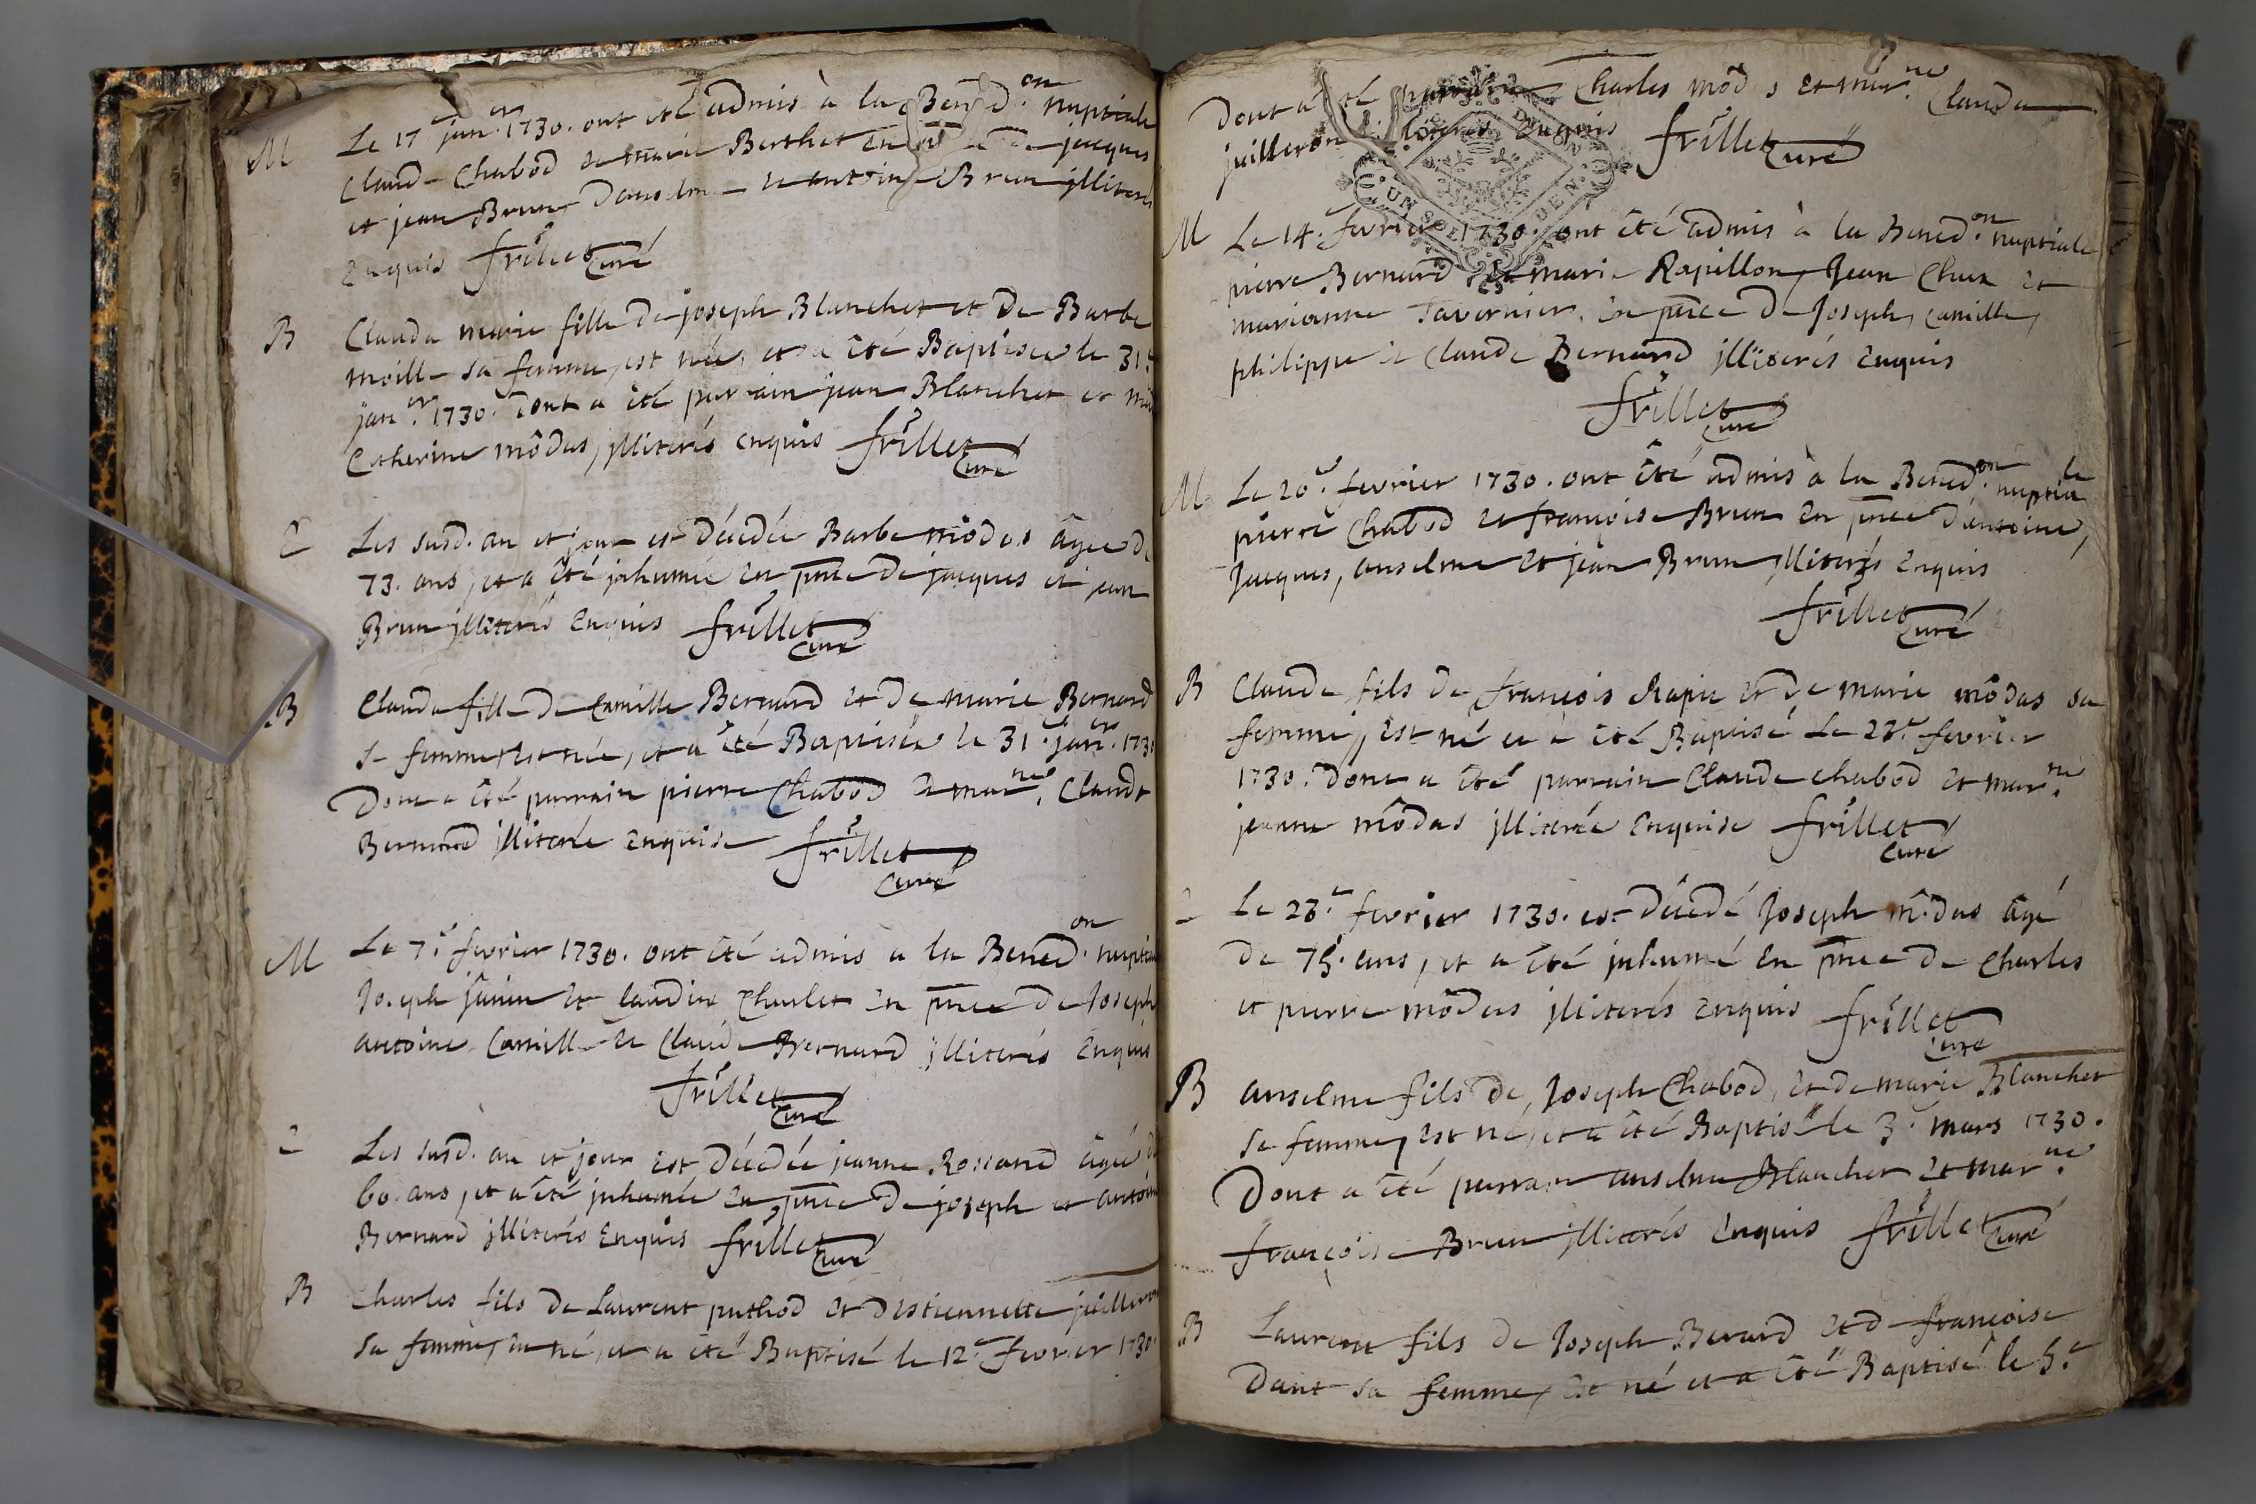 M Le 17e janer 1730. ont eté admis à la Bened.on nuptiale
Claude Chabod et marie Berthet en de jacques
et jean Brun, Danselme et antoine Brun illiterés
enquis frillet Curé
B Clauda marie fille de joseph Blanchet et De Barbe
moille sa femme, est née, et a été Baptisée le 31e
janer 1730. Dont a été parrain jean Blanchet et
Catherine môdas, illiterés enquis frillet Curé
Les susd. an et jour est décédée Barbe môdas âgée de
73. ans, et a été inhumée en pnce de jacques et jean
Brun illiterés Enquis frillet Curé
B Clauda fille de Camille Bernard et de marie Bernard
sa femme, est née, et a été Baptisée le 31e janer 1730
Dont a été parrain pierre Chabod et marne Clauda
Bernard illiterée enquise frillet
Curé
M Le 7e fevrier 1730. ont été admis a la Bened.on
joseph et Claudine Charlet en pnce de Joseph
antoine Camille et Claude Bernard illiterés Enquis
frillet Curé
Les susd. an et jour est décédée jeanne Rossand âgée de
60. ans, et a été inhumée en pnce de joseph et antoine
Bernard illiterés Enquis frillet Curé
B Charles fils de Laurent puthod et destiennette juilleron
sa femme, est né, et a été Baptisé le 12e fevrier 1730.
Dont a été parrain Charles et marne Clauda
juilleron enquis frillet Curé
M Le 14e fevrier 1730. ont été admis à la Bened.on nuptiale
pierre Bernard et marie Rapillon, Jean Chaux et
marianne Tavernier. en pnce de Joseph, camille,
philippe et Claude Bernard illiterés enquis
frillet
Curé
M Le 20e fevrier 1730. ont été admis à la Bened.on nuptiale
pierre Chabod et françoise Brun en pnce d'antoine,
Jacques, anselme et jean Brun illiterés enquis
frillet Curé
B Claude fils de françois Rapie et de marie môdas sa
femme, est né et a été Baptisé Le 23e fevrier
1730. Dont a été parrain Claude chabod et marne
jeanne môdas illiterée enquise frillet
Curé
Le 23e fevrier 1730. est décédé Joseph môdas âgé
de 75. ans, et a été inhumé en pnce de Charles
et pierre môdas illiterés enquis frillet
Curé
B anselme fils de Joseph Chabod, et de marie Blanchet
sa femme, est né, et a été Baptisé le 3e mars 1730.
Dont a été parrain anselme Blanchet et marne
françoise Brun illiterés Enquis frillet Curé
B Laurent fils de Joseph Berard et de françoise
Dant sa femme, est né et a été Baptisé le 5e